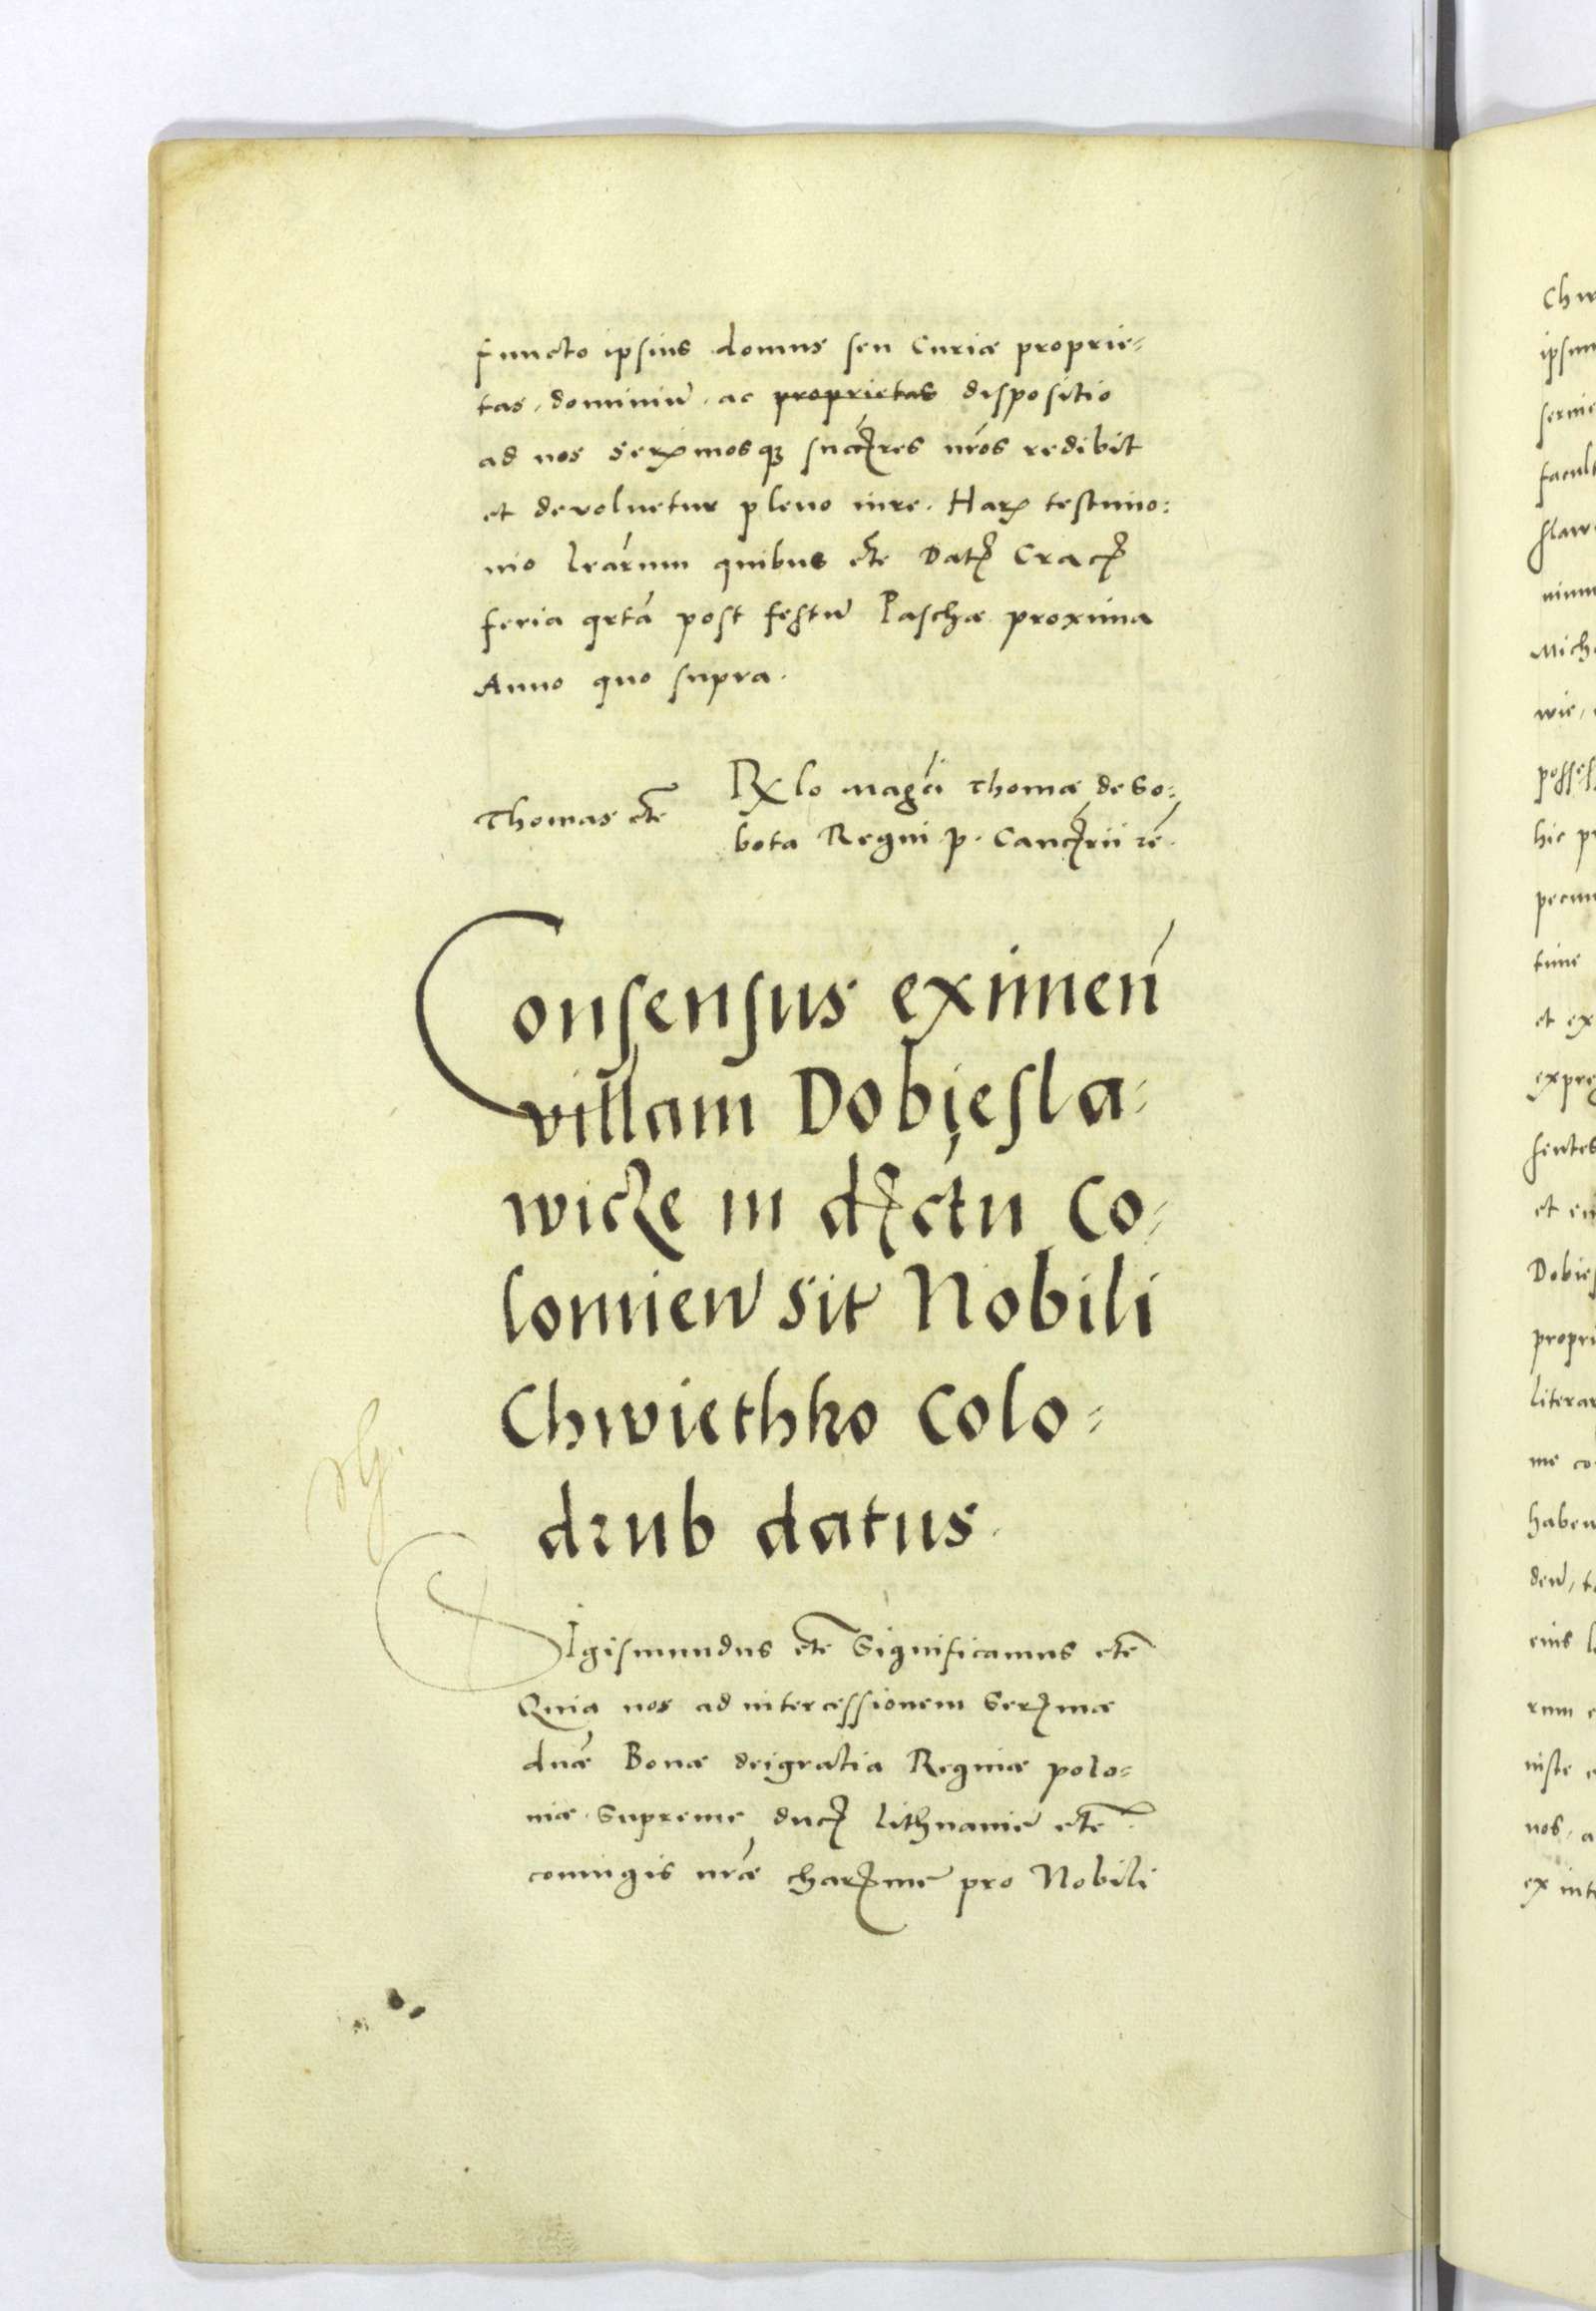 functo ipsius domus seu Curiæ proprie=
tas, dominiū, ac proprietas dispositio
ad nos Serꝝmosqꝫ succr̄es nr̄os redibit
et devoluetur pleno iure. Harꝝ testimo:
nio lrārum quibus etc̄ Datꝭ Cracꝭ
feria qrtā post festū Paschæ proxima
Anno quo supra.
Thomas etc̄
Rꝝlo magci Thomæ de So:
bota Regni p. Cancꝭrii rē.
Consensus eximen̄
villam Dobiesla=
wicze in dꝭctu Co=
lomien̄ sit Nobili
Chwiethko Colo=
drub datus.
SIgismundus etc̄ Significamus etc̄
Quia nos ad intercessionem Serꝭmæ
dn̄æ Bonæ dei gratia Reginæ polo=
niæ Supreme ducꝭ lithuaniē etc̄
coniugis nr̄æ charꝭme pro Nobili
Chw
ipsum
servie
facult
slaw
Mich
wie,
possess
hic p
pecun
time
et ex
expre
sentes
et
Dobies
propri
literar
me co
haben
den̄, t
eius
rum
iste
nos, a
ex int